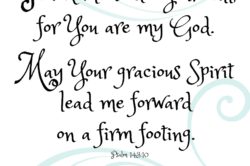 for You are my God.
May Your gracious Spirit
lead me forward
on a firm footing.
Psalm 143:10